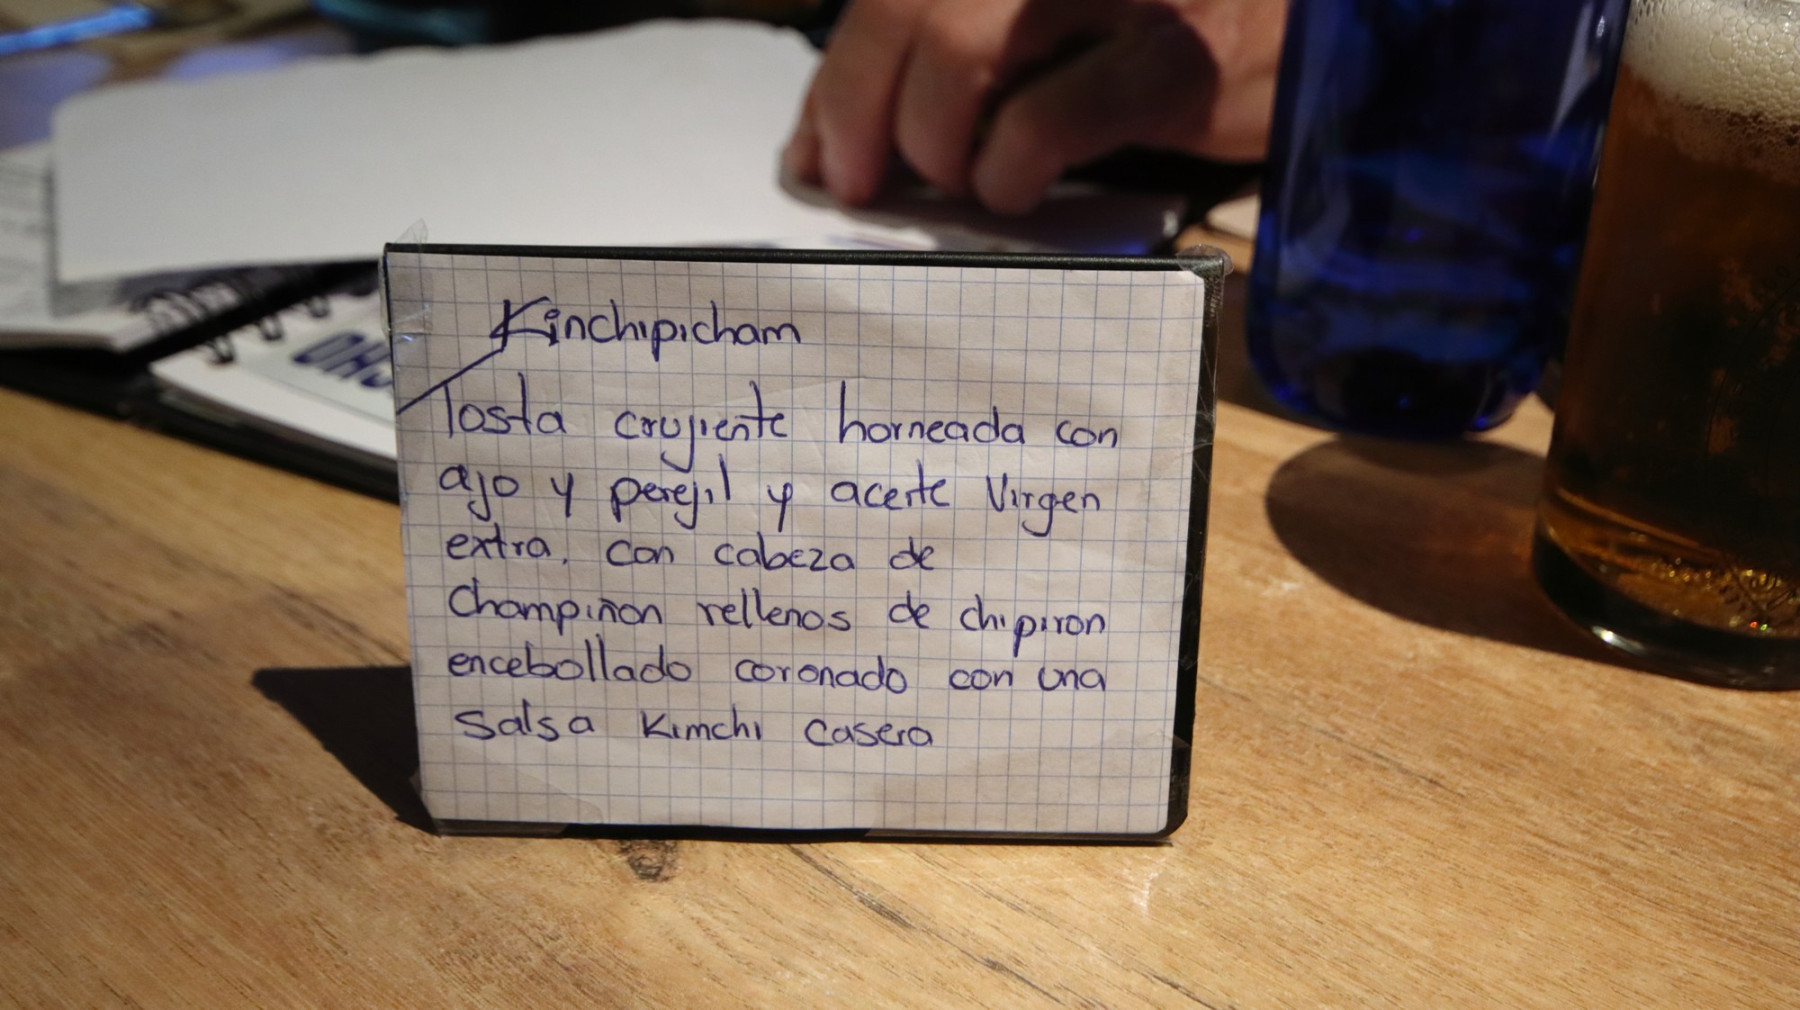 Kinchipicham
Tosta crujiente horneada con
ajo y perejil y aceite Virgen
extra, con cabeza de
Champiñon rellenos de chipiron
encebollado coronado con una
Salsa Kimchi Casera